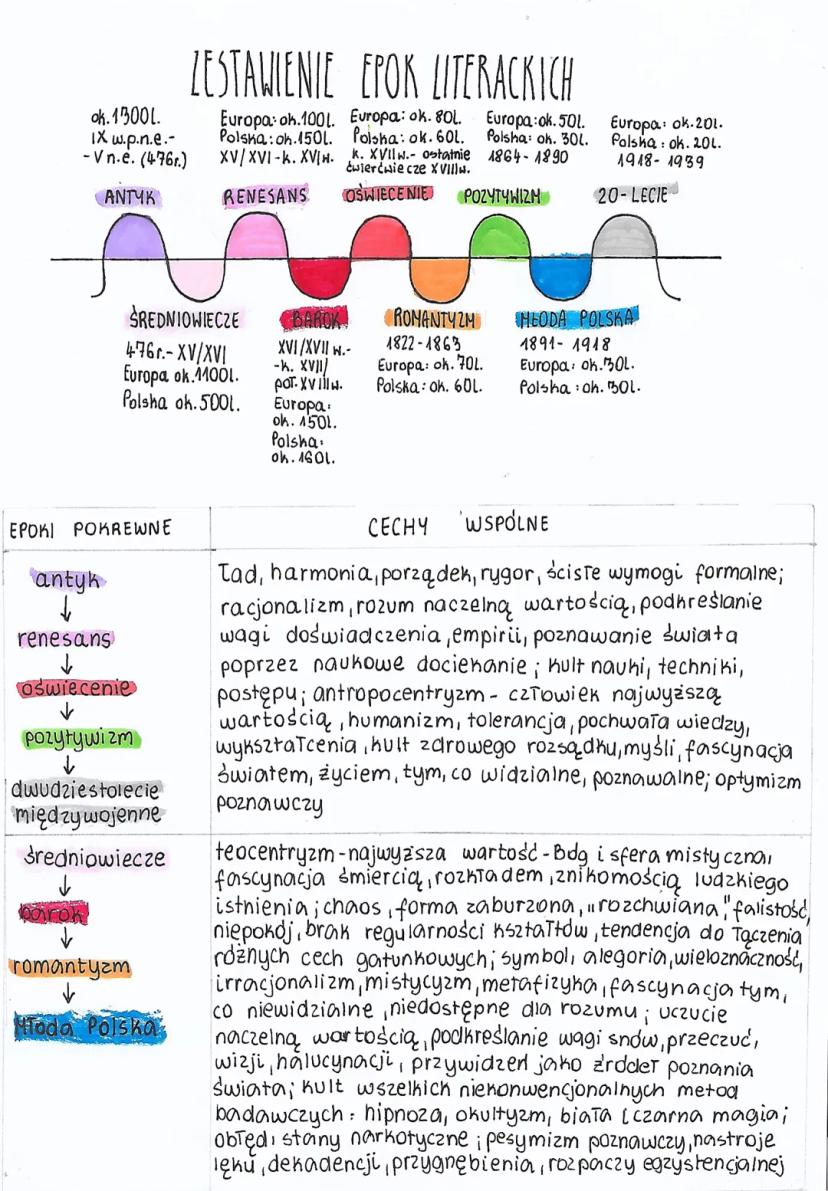 ZESTAWIENIE EPOK LITERACKICH
ok. 1300l.
IX w.p.n.e.-
-V n.e. (476r.)
ANTYK
Europa: ok. 100l.
Polska: ok. 150l.
XV/XVI - k. XVIw.
RENESANS
Europa: ok. 80l.
Polska: ok. 60l.
k. XVIIw.- ostatnie
ćwierćwiecze XVIIIw.
OŚWIECENIE
Europa: ok. 50l.
Polska: ok. 30l.
1864- 1890
POZYTYWIZM
Europa: ok. 20l.
Polska: ok. 20l.
1918- 1939
20-LECIE
ŚREDNIOWIECZE
476r.- XV/XVI
Europa ok. 1100l.
Polska ok. 500l.
BAROK
XVI/XVII w.-
-k. XVII/
poł. XVIIIw.
Europa:
ok. 150l.
Polska:
ok. 160l.
ROMANTYZM
1822-1863
Europa: ok. 70l.
Polska: ok. 60l.
MŁODA POLSKA
1891- 1918
Europa: ok. 30l.
Polska : ok. 30l.
EPOKI POKREWNE
CECHY WSPÓLNE
antyk
↓
renesans
↓
oświecenie
↓
pozytywizm
↓
dwudziestolecie
międzywojenne
Ład, harmonia, porządek, rygor, ścisłe wymogi formalne;
racjonalizm, rozum naczelną wartością, podkreślanie
wagi doświadczenia, empirii, poznawanie świata
poprzez naukowe dociekanie; kult nauki, techniki,
postępu; antropocentryzm - człowiek najwyższą
wartością, humanizm, tolerancja, pochwała wiedzy,
wykształcenia, kult zdrowego rozsądku, myśli, fascynacja
światem, życiem, tym, co widzialne, poznawalne; optymizm
poznawczy
średniowiecze
↓
barok
↓
romantyzm
↓
Młoda Polska
teocentryzm - najwyższa wartość - Bóg i sfera mistyczna,
fascynacja śmiercią, rozkładem, znikomością ludzkiego
istnienia; chaos, forma zaburzona, "rozchwiana", falistość,
niepokój, brak regularności kształtów, tendencja do łączenia
różnych cech gatunkowych; symbol, alegoria, wieloznaczność,
irracjonalizm, mistycyzm, metafizyka, fascynacja tym,
co niewidzialne, niedostępne dla rozumu; uczucie
naczelną wartością, podkreślanie wagi snów, przeczuć,
wizji, halucynacji, przywidzeń jako źródeł poznania
świata; kult wszelkich niekonwencjonalnych metod
badawczych: hipnoza, okultyzm, biała i czarna magia;
obłęd i stany narkotyczne; pesymizm poznawczy, nastroje
lęku, dekadencji, przygnębienia, rozpaczy egzystencjalnej